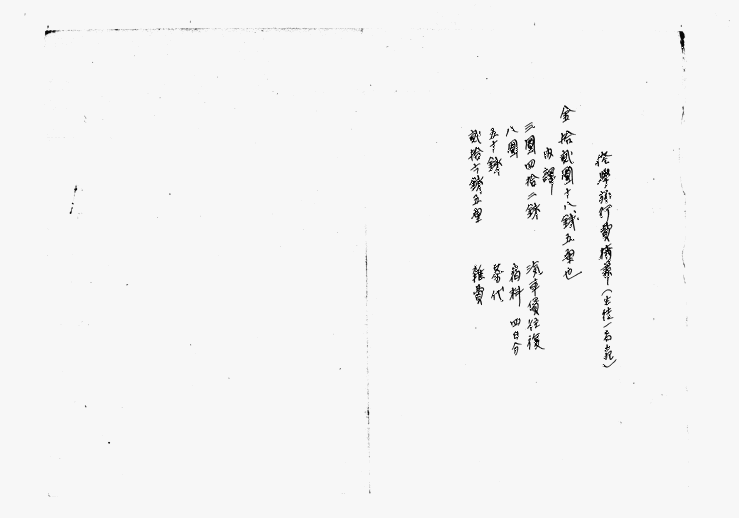 修學旅行費積算(生徒一名ニ就)
金拾貳圓十八錢五厘也
內譯
三圓四拾二錢 汽車賃往復
八圓 宿料 四日分
五十錢 茶代
貳拾六錢五厘 雜費